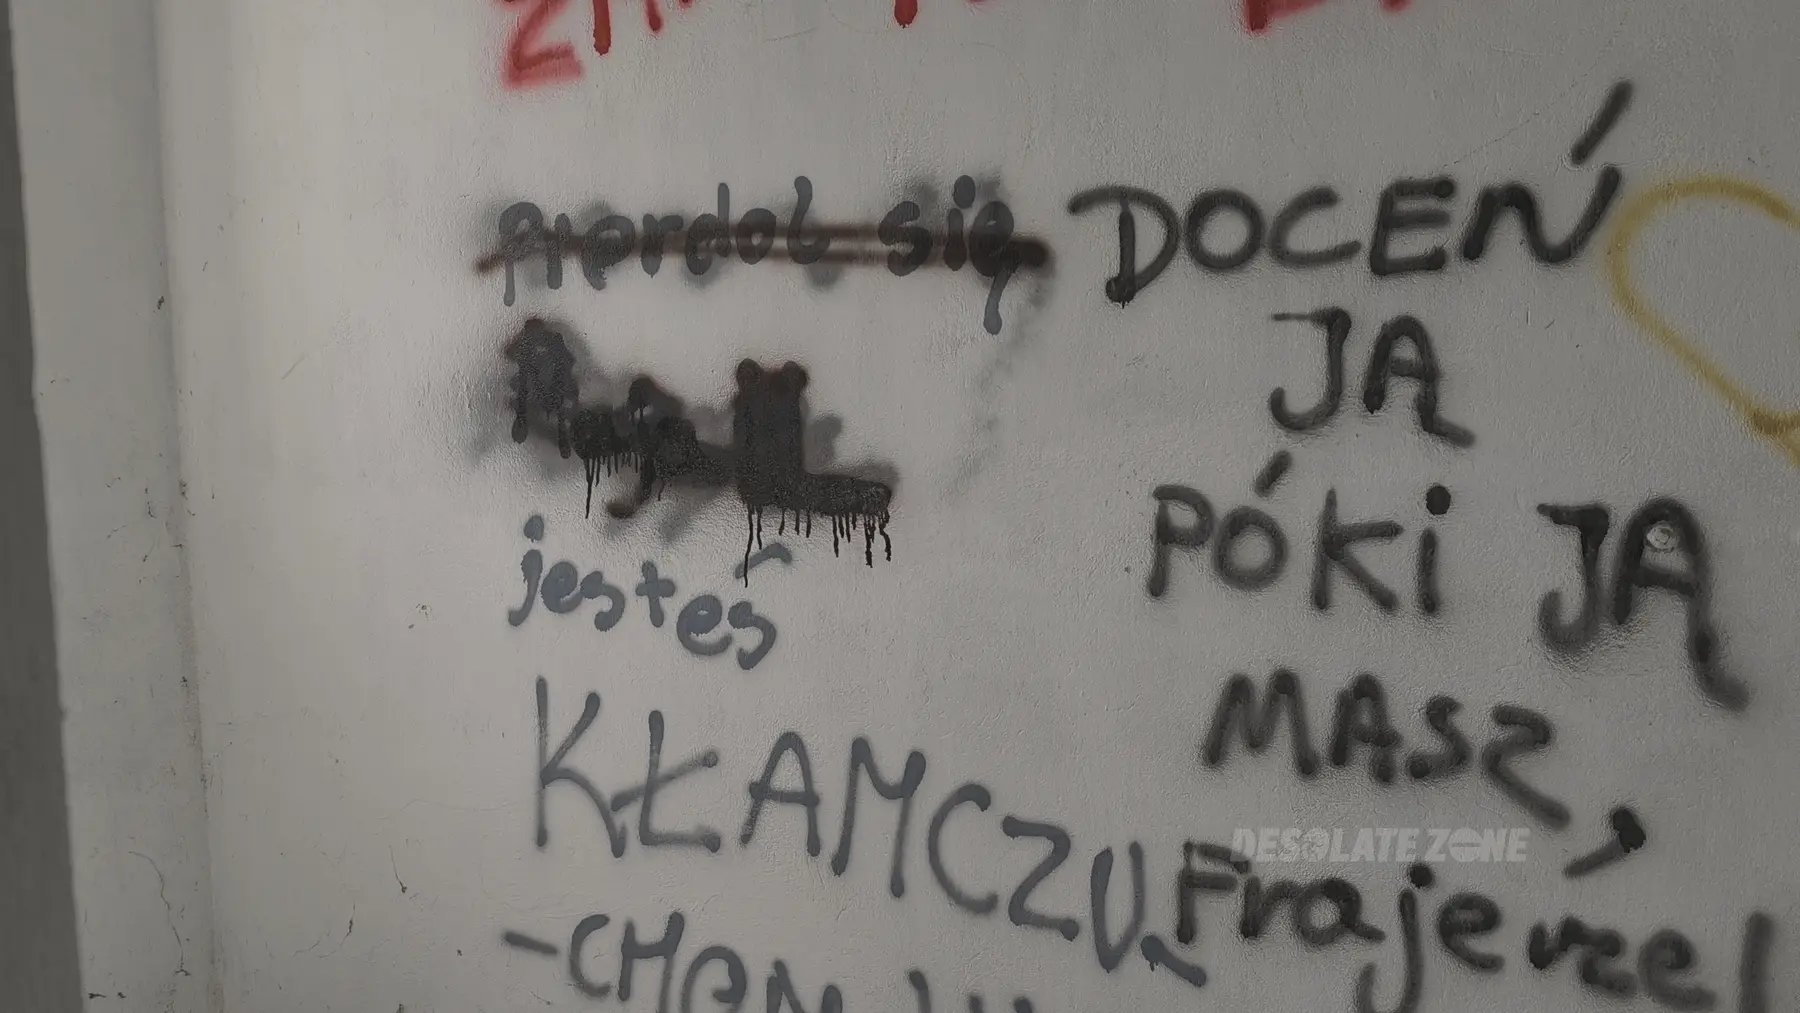 pierdol się
jesteś
KŁAMCZU
DOCEŃ
JĄ
PÓKI JĄ
MASZ,
Frajerze!
DESOLATE ZONE